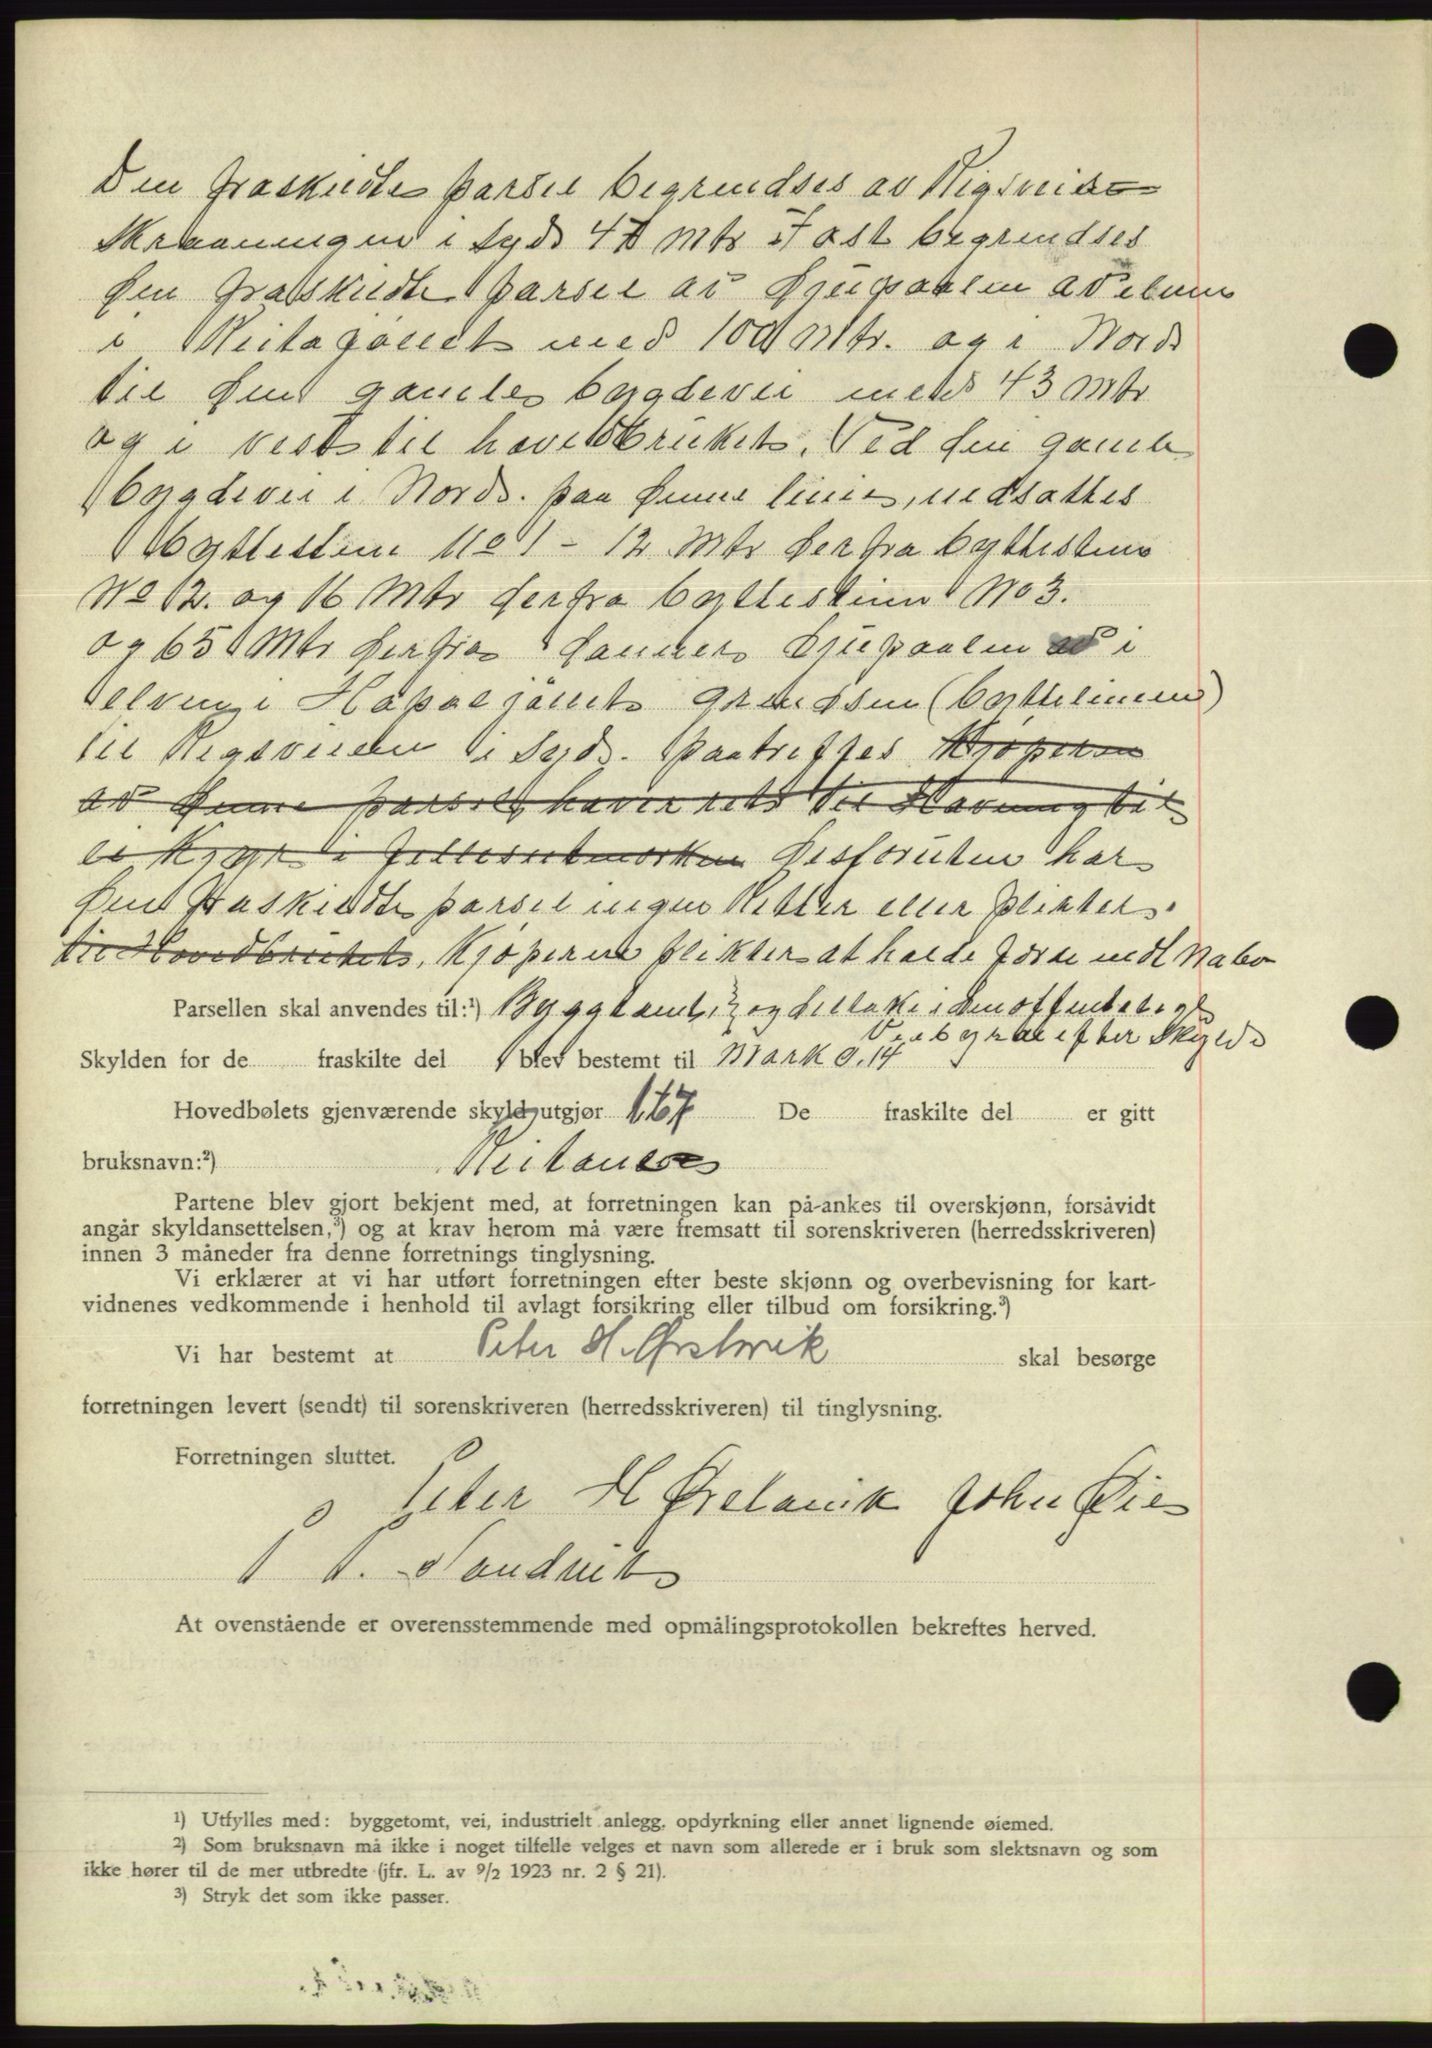 Den fraskildte parsel begrendses av Rigsveiens
Skraaningen i Syd 47 Mtr I øst begrendses
den fraskildte parsel av Djupaalen av elven
i Reitagjölet med 100 Mtr. og i Nord
til den gamle bygdevei med 43 Mtr
og i vest til hovedbruket. Ved den gamle
bygdevei i Nord. paa denne linie, nedsattes
byttesten No 1 - 12 Mtr derfra byttesten
No 2. og 16 Mtr derfra byttesten No 3.
og 65 Mtr derfra danner Djupaalen av i
elven i grendsen (byttelinien)
til Rigsveien i Syd. paatreffes Kjøperen
av denne parsel haver rett til Havning til
ei Kyr i fellesutmarken Desforuten har
den fraskildte parsel ingen Retter eller plikter
til Hovedbruket. Kjøperen plikter at holde gjerde mot Nabo
Parsellen skal anvendes til:¹) Byggtomt, og deltake i den offentlige
Veibyrde efter Skyld
Skylden for de fraskilte del blev bestemt til Mark 0.14
Hovedbølets gjenværende skyld utgjør 1.67 De fraskilte del er gitt
bruksnavn:²)
Partene blev gjort bekjent med, at forretningen kan på-ankes til overskjønn, forsåvidt
angår skyldansettelsen,³) og at krav herom må være fremsatt til sorenskriveren (herredsskriveren)
innen 3 måneder fra denne forretnings tinglysning.
Vi erklærer at vi har utført forretningen efter beste skjønn og overbevisning for kart-
vidnenes vedkommende i henhold til avlagt forsikring eller tilbud om forsikring.³)
Vi har bestemt at Peter H. Ørstavik skal besørge
forretningen levert (sendt) til sorenskriveren (herredsskriveren) til tinglysning.
Forretningen sluttet.
Peter H Ørstavik John Øie
P P. Sandvik
At ovenstående er overensstemmende med opmålingsprotokollen bekreftes herved.
¹) Utfylles med: byggetomt, vei, industrielt anlegg, opdyrkning eller annet lignende øiemed.
²) Som bruksnavn må ikke i noget tilfelle velges et navn som allerede er i bruk som slektsnavn og som
ikke hører til de mer utbredte (jfr. L. av 9/2 1923 nr. 2 § 21).
³) Stryk det som ikke passer.